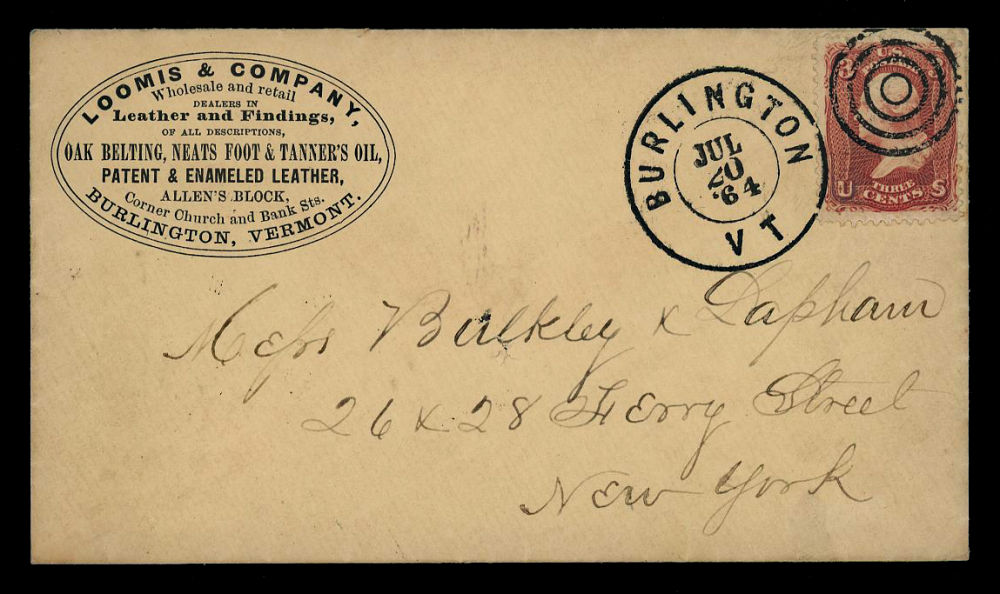 LOOMIS & COMPANY,
Wholesale and retail
DEALERS IN
Leather and Findings,
OF ALL DESCRIPTIONS,
OAK BELTING, NEATS FOOT & TANNER'S OIL,
PATENT & ENAMELED LEATHER,
ALLEN'S BLOCK,
Corner Church and Bank Sts.
BURLINGTON, VERMONT.
BURLINGTON
JUL
20
'64
VT
3
U.S.
U S
THREE
CENTS
Messrs Bulkley & Lapham
26 & 28 Ferry Street
New York